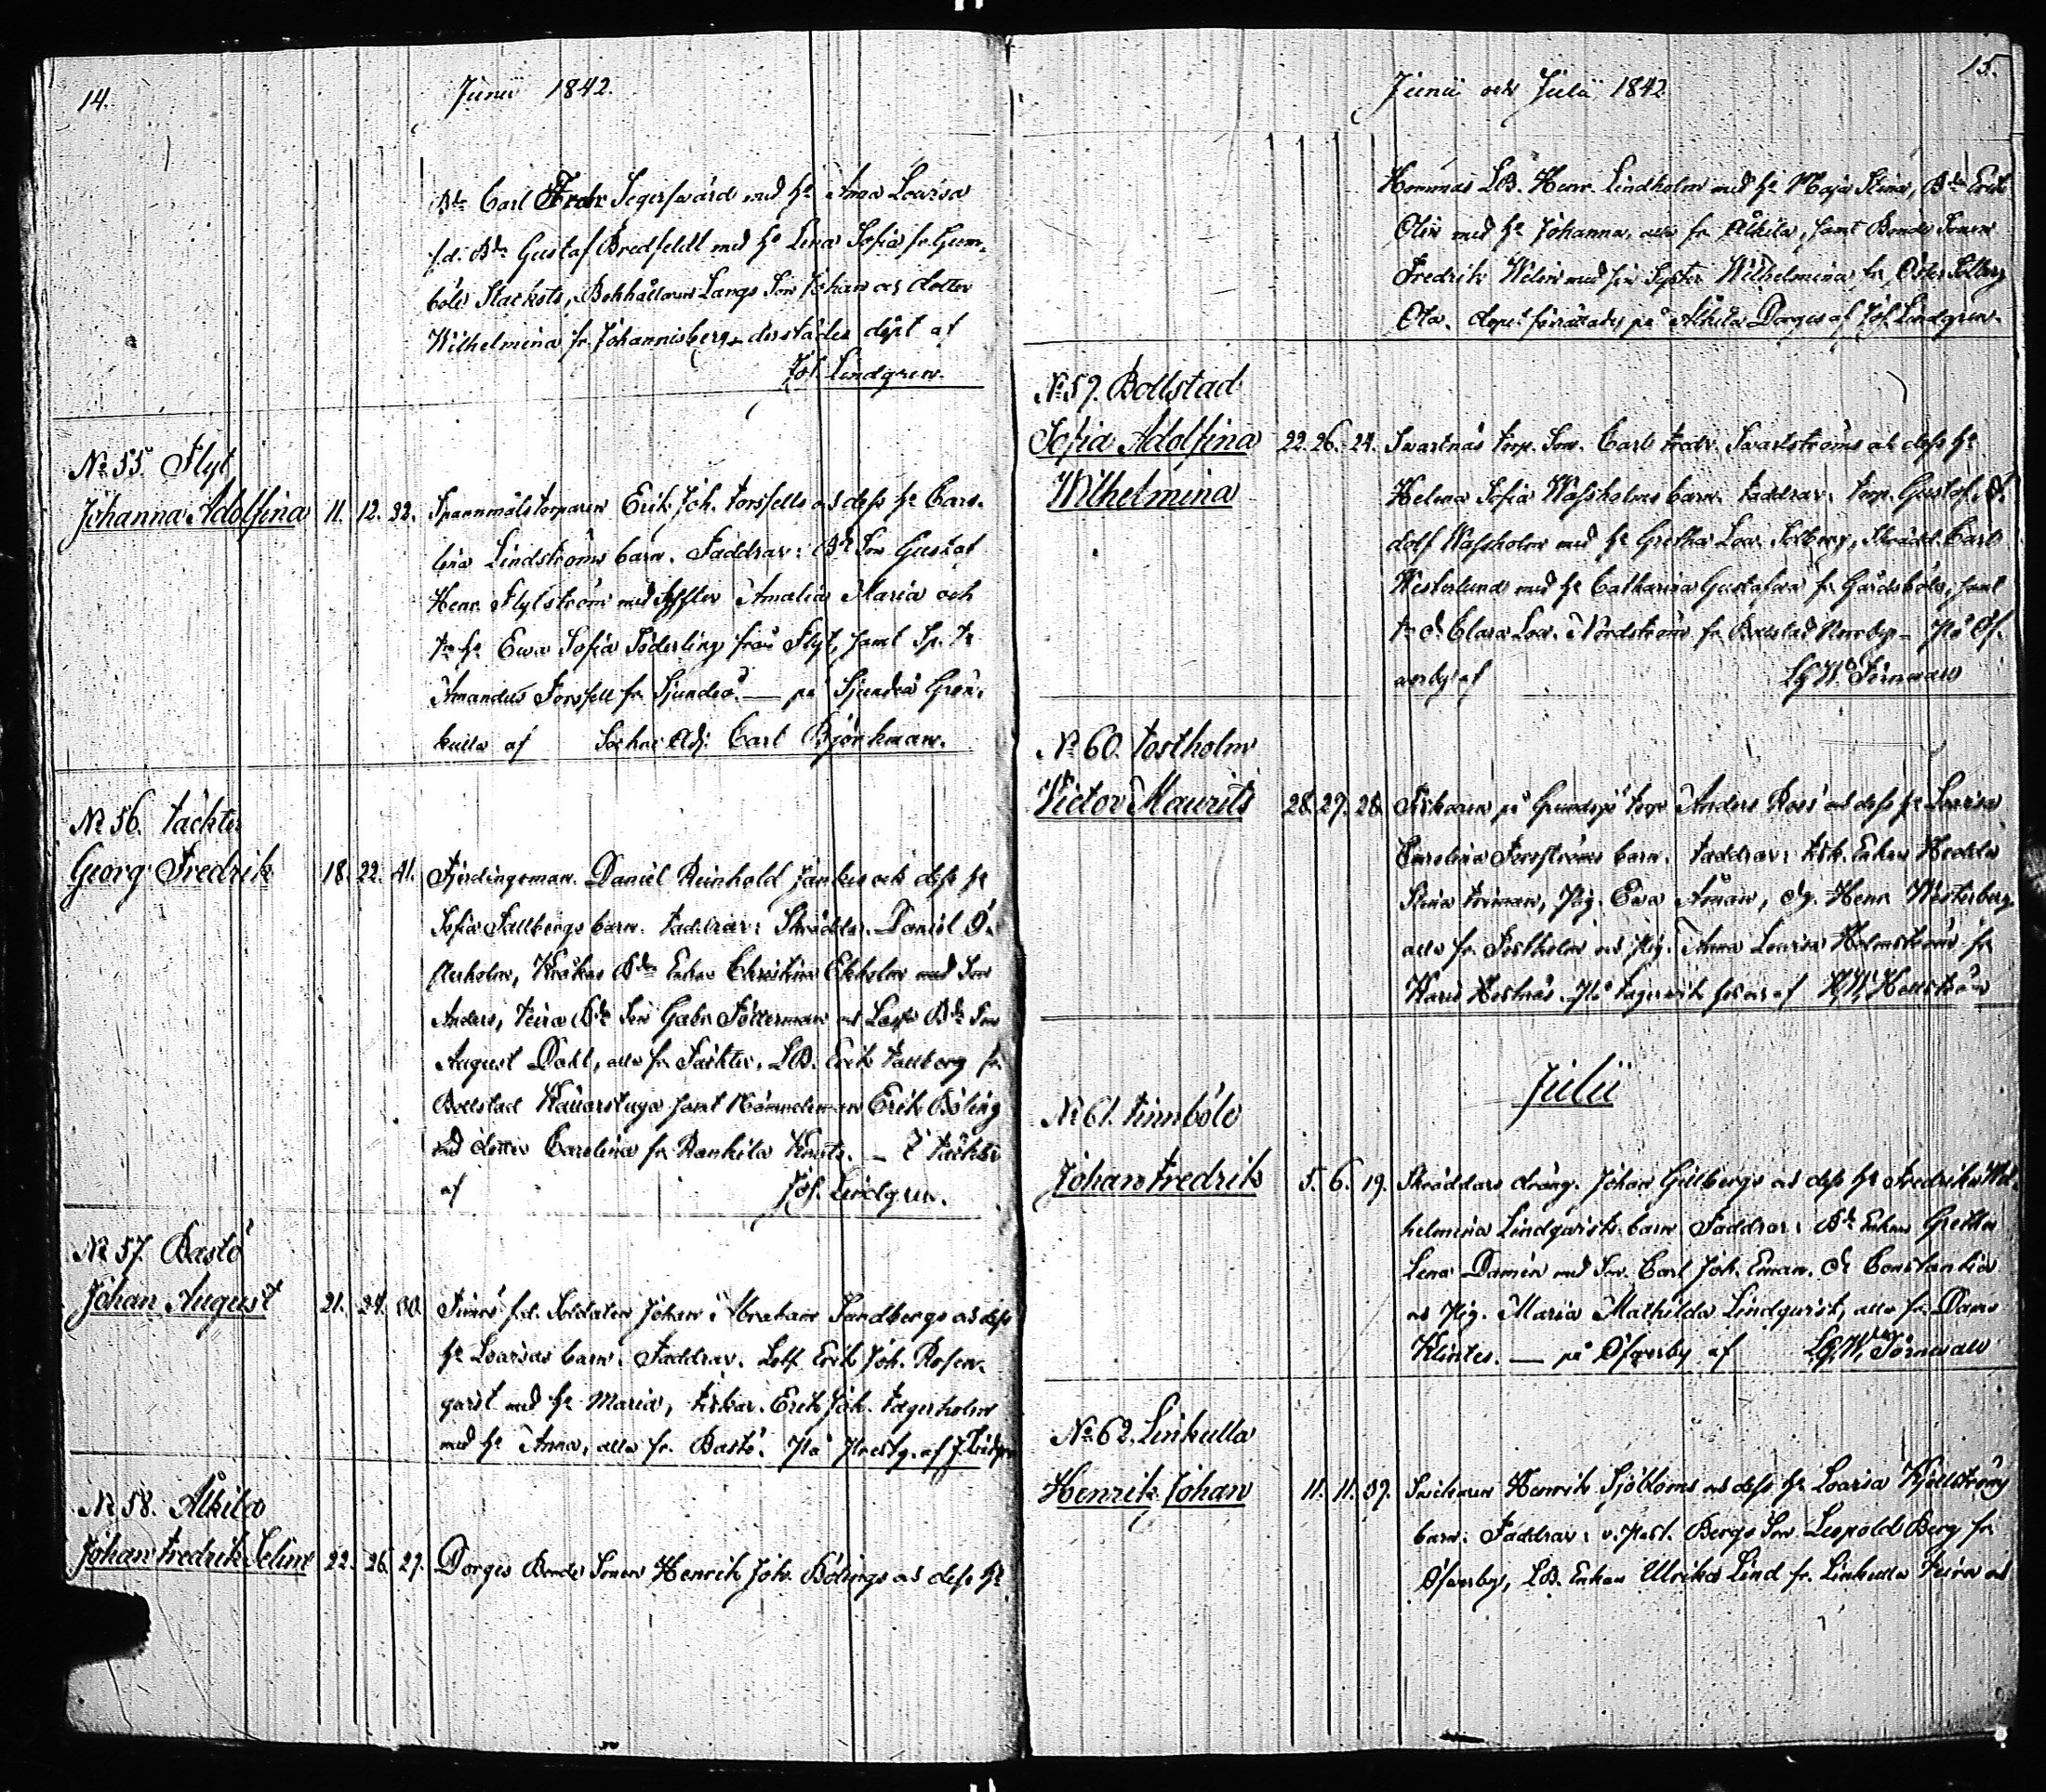 14.
Junii 1842.
Bde Carl Fredr Segersvärd med Ha Anna Lovisa
f.d. Bdn Gustaf Bredfeldt med Ha Lena Sofia fr. Gum-
böle Starkots, Bokhållaren Langs Son Johan och dotter
Wilhelmina fr. Johannisberg, derstädes döpt af
Joh. Lindgren.
No 55. Flyt
Johanna Adolfina 11. 12. 32. Spannmålstorparen Erik Joh. Forsfells och dess Ha Caro-
lina Lindströms barn. Faddrar: Bde Son Gustaf
Henr. Flytström med Amalia Maria och
Ha Ewa Sofia Söderling från Flyt, samt
Amandus Forsfell fr. Sjundeå. — på Sjundeå Grän-
kulla af Adj. Carl Björkman.
No 56. Täckter
Georg Fredrik 18. 22. 41. Fjerdingsman. Daniel Reinhold Jankes och dess Ha
Sofia Fallbergs barn. Faddrar: Skräddar. Daniel Ö-
sterholm, Bdn Enkan Christina Ekholm med Son
Anders, Bde Son Gabr. och Bde Son
August Dahl, alla fr. Täckter, LB. Erik Fallberg fr.
Bollstad samt Nämndeman Erik Böling
med dotter Carolina fr. Rankila — i Täckter
af Joh. Lindgren.
No 57. Bastö
Johan August 21. 24. 30. f.d. Soldaten Johan Abraham Sundbergs och dess
Ha Lovisas barn. Faddrar. Erik Joh. Rosen-
qvist med Ha Maria, Fiskar. Erik Joh. Fagerholm
med Ha Anna, alla fr. Bastö. På Prestg. af J. Lindgren
No 58. Ålkila
Johan Fredrik Selim 22. 26. 27. Dorges Bonde Sonen Henrik Joh. Bölings och dess Ha
15.
Junii och Julii 1842
LB. Henr. Lindholm med Ha Maja Stina, Bdn Erik
Olin med Ha Johanna, alla fr. Ålkila, samt Bonde Sonen
Fredrik Welin med sin Syster Wilhelmina fr. Öster Solberg
Ola. dopet förrättades på Ålkila Dorges af Joh. Lindgren.
No 59. Bollstad
Sofia Adolfina 22. 26. 24. Svartnäs torp. Son. Carl Fredr. Svartströms och dess Ha
Wilhelmina Helena Sofia Wassholms barn. Faddrar: torp. Gustaf A-
dolf Wassholm med Ha Gretha Lov. Solberg, Skrädd. Carl
Westerlund med Ha Catharina Gustafva fr. Gårdsböle, samt
Clara Lov. Nordström fr. Bollstad — På Öf-
verby af Törnwall
No 60. Fostholm
Victor Maurits 28. 29. 28. Fiskaren på Grundsjö torp Anders Roos och dess Ha Lovisa
Carolina Forsströms barn. Faddrar: Fisk. Enkan Hedda
Stina Forman, Pig. Eva Åman, Dg. Henr. Westerberg
alla fr. Fostholm och Pig. Anna Lovisa Holmström fr.
Karis På Fagervik af Hellström
Julii
No 61. Finnböle
Johan Fredrik 5. 6. 19. Skräddare dräng. Johan Gillbergs och dess Ha Fredrika Wil-
helmina Lindqvists barn Faddrar: Bde Enkan Gretha
Lena Damén med Son. Carl Joh. Eman. Constantia
och Pig. Maria Mathilda Lindqvist, alla fr. Dams
Klintes. — på Öfverby af Törnwall
No 62. Linkulla
Henrik Johan 11. 11. 39. Snickaren Henrik Sjöbloms och dess Ha Lovisa Kjellströms
barn. Faddrar: v.Past. Bergs Son Leopold Berg fr.
Öfverby, LB. Enkan Ulrika Lind fr. Linkulla och